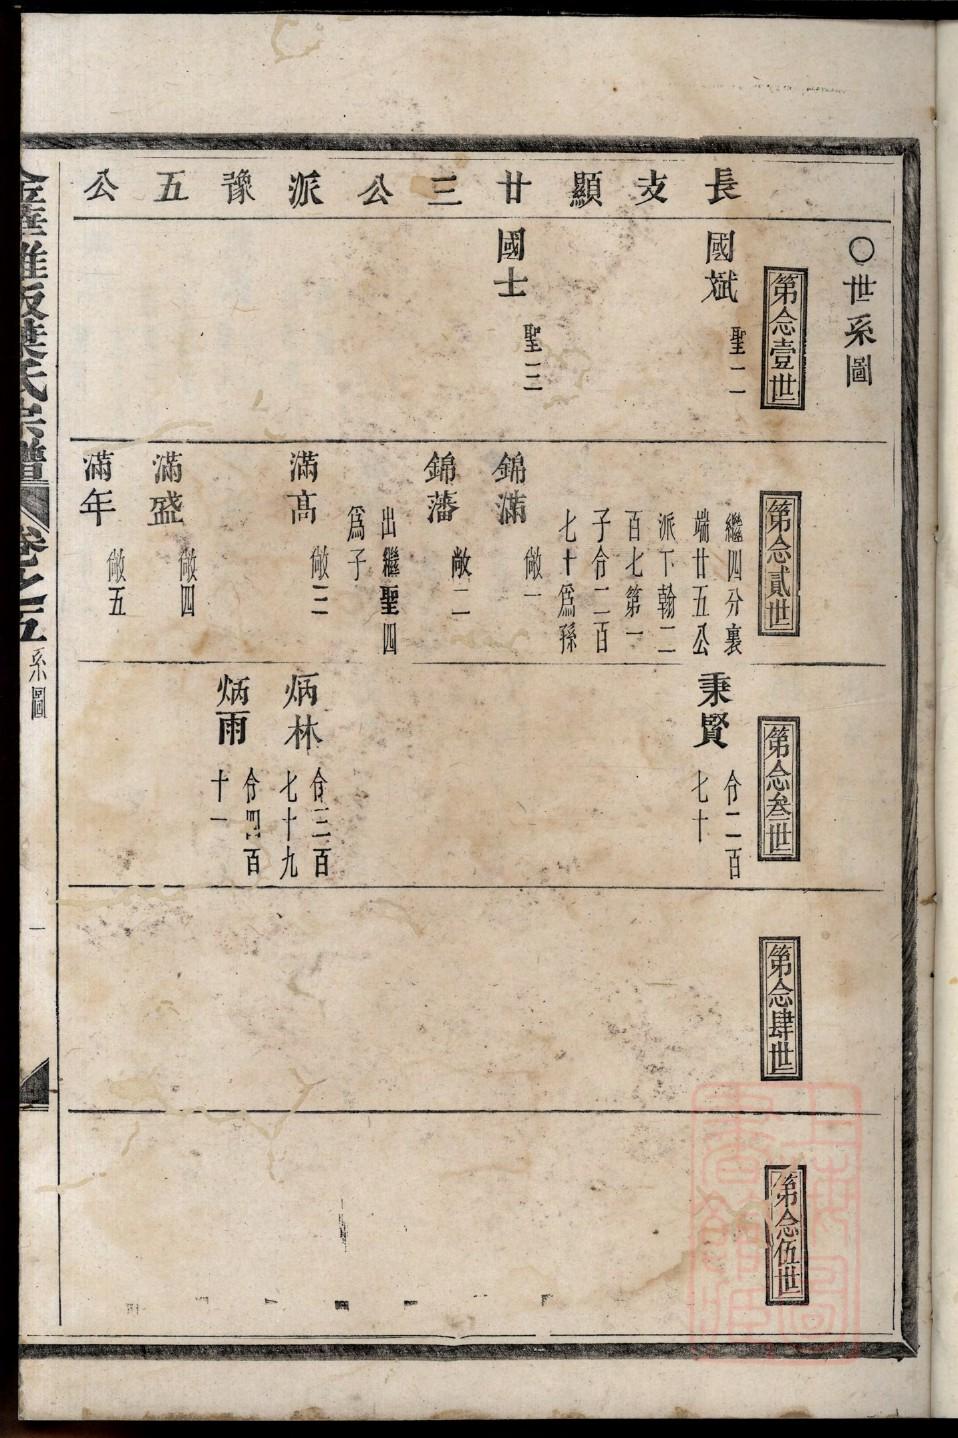 ○世系圖
長支顯廿三公派豫五公
第念壹世
國斌 聖二
國士 聖三
第念貳世
繼四分裏
端廿五公
派下翰二
百七第一
子令二百
七十爲孫
錦滿 敞一
錦藩 敞二
出繼聖四
爲子
滿高 敞三
滿盛 敞四
滿年 敞五
第念叁世
秉賢 令二百
七十
炳林 令三百
七十九
炳雨 令四百
十一
第念肆世
第念伍世
葉氏宗譜
卷之五
系圖
一